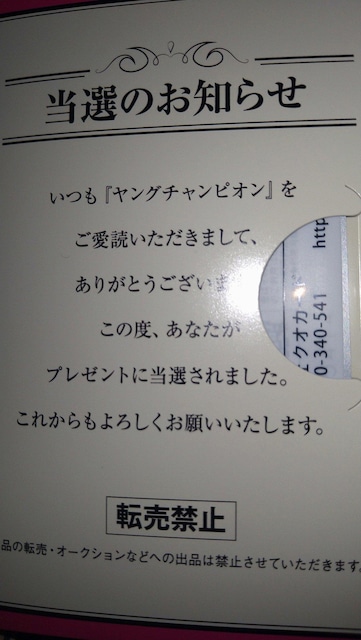 当選のお知らせ
いつも『ヤングチャンピオン』を
ご愛読いただきまして、
ありがとうございま
この度、あなたが
プレゼントに当選されました。
これからもよろしくお願いいたします。
http
クオカー
0-340-541
転売禁止
品の転売・オークションなどへの出品は禁止させていただきます